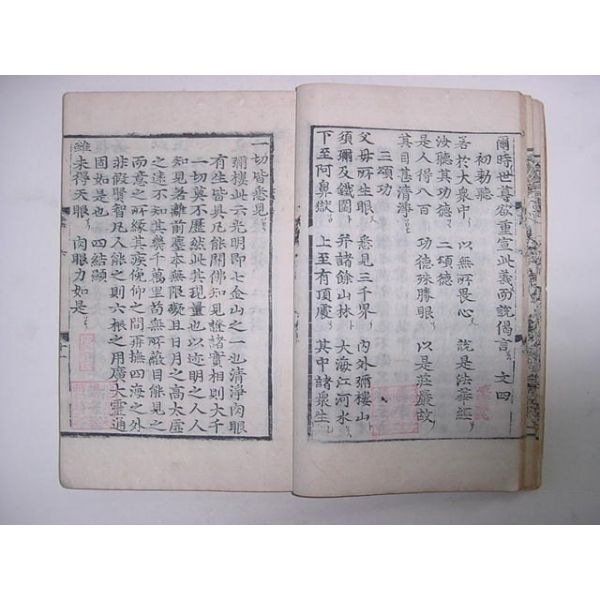 爾時世尊欲重宣此義而說偈言 文四
初勑聽
若於大衆中 以無所畏心 說是法華經
汝聽其功德 二頌德
是人得八百 功德殊勝眼 以是莊嚴故
其目甚清淨
三頌功
父母所生眼 悉見三千界 內外彌樓山
須彌及鐵圍 幷諸餘山林 大海江河水
下至阿鼻獄 上至有頂處 其中諸衆生
一切皆悉見
彌樓此云光明即七金山之一也清淨肉眼
有生皆具凡能開佛知見證諸實相則大千
一切莫不歷然此其現量也以迹明之人人
知見若離前塵本無限礙且日月之高大虛
之逺不知其幾千萬里苟無所蔽目能見之
而意之所緣其疾俛仰之間再撫四海之外
非假賢智凡人能之則六根之用廣大靈通
固如是也 四結顯
雖未得天眼 肉眼力如是